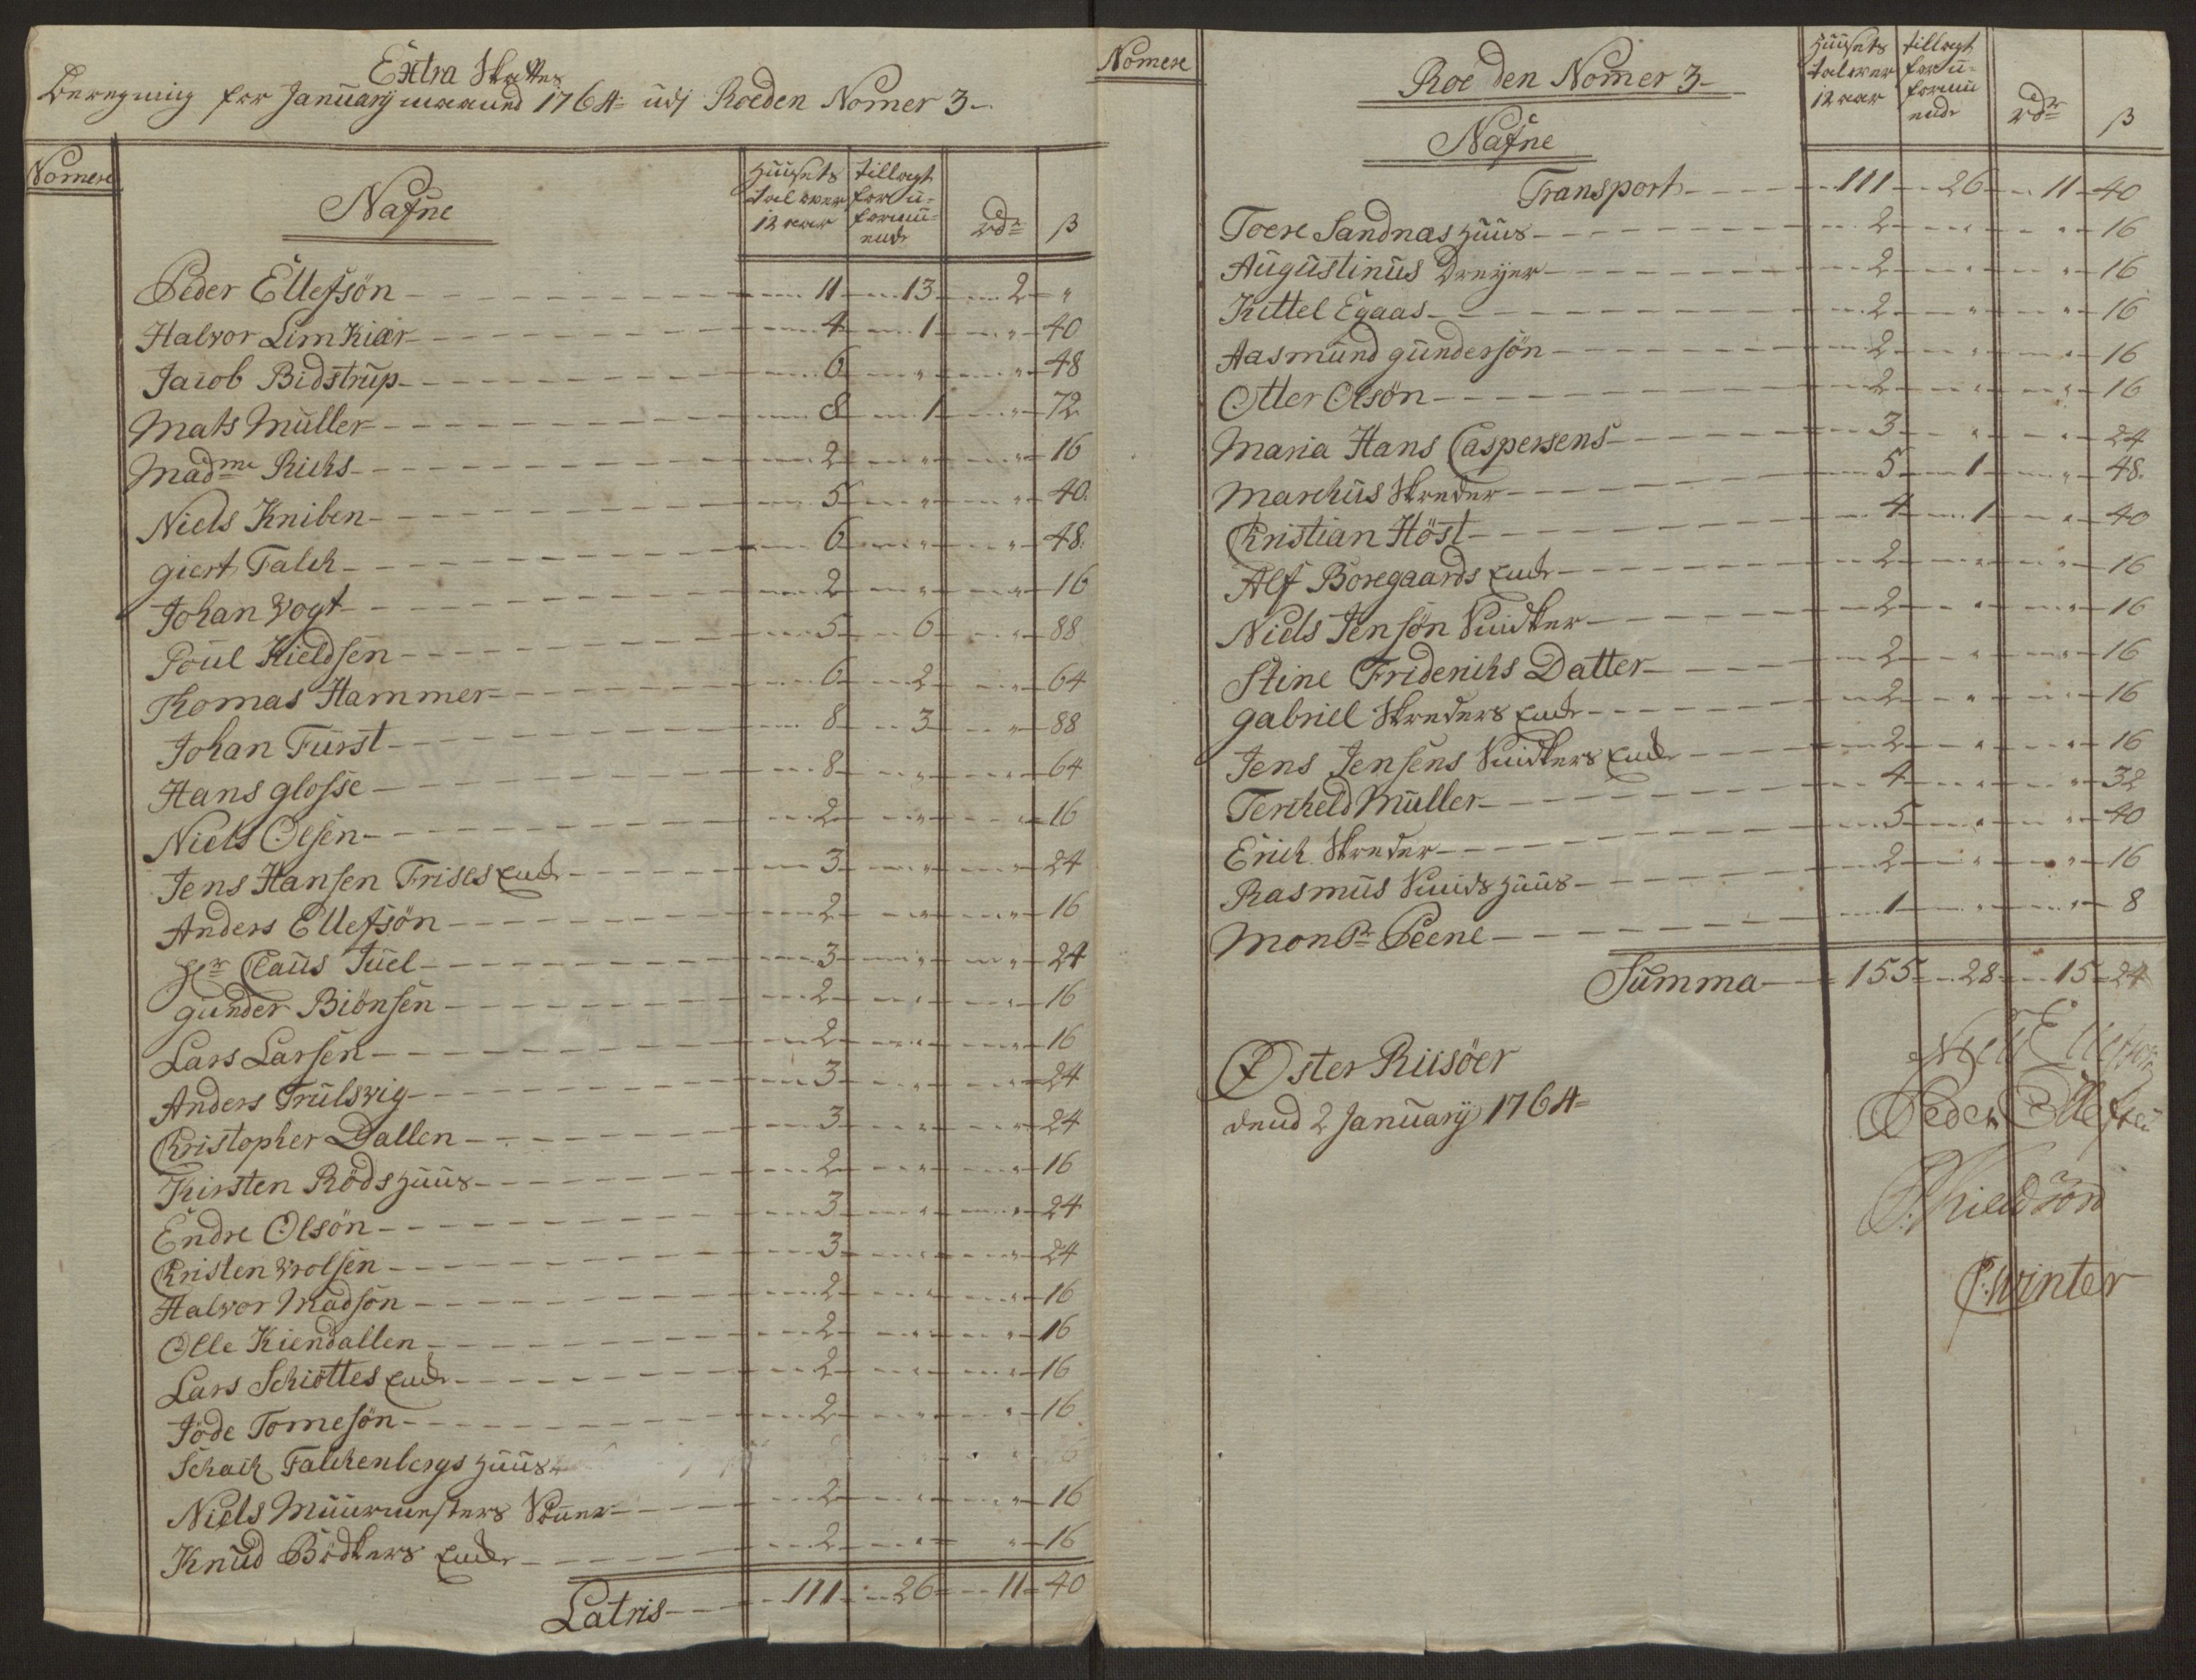 Extra Skattes
Beregning for January maaned 1764 udj Roeden Nomer 3
Nomere Nafne Huusets tal over 12 aar tillagt for u- formu- ende rdr ß
Peder Ellefsön 11 13 2 "
Halvor Limkiær 4 1 " 40
Jacob Bidstrup 6 " " 48
Mats Müller 8 1 " 72
Madme Richs 2 " " 16
Niels Kniben 5 " " 40
giert Falch 6 " " 48
Johan Vogt 2 " " 16
Poul Kieldsen 5 6 " 88
Thomas Hammer 6 2 " 64
Johan Fürst 8 3 " 88
Hans glosse 8 " " 64
Niels Olsen 2 " " 16
Jens Hansen Frises Enke 3 " " 24
Anders Ellefsön 2 " " 16
Hr Claus Juel 3 " " 24
gunder Biönsen 2 " " 16
Lars Larsen 2 " " 16
Anders Trulsvig 3 " " 24
Christopher Dallen 3 " " 24
Kirsten Röds Huus 2 " " 16
Endre Olsön 3 " " 24
Christen Vrolsen 3 " " 24
Halvor Madsön 2 " " 16
Olle Kiendallen 2 " " 16
Lars Schiöttes Enke 2 " " 16
Jöde Tomesön 2 " " 16
Schach Falchenbergs Huus
Niels Muurmesters 2 " " 16
Knud Bödkers Enke 2 " " 16
Latris 111 26 11 40
Nomere Roeden Nomer 3 Huusets tal over 12 aar tillagt for u- formu- ende rdr ß
Nafne
Transport 111 26 11 40
Toere Sandnæs Huus 2 " " 16
Augustinus Dreyer 2 " " 16
Kittel Egaas 2 " " 16
Aasmund gundersön 2 " " 16
Otter Olsön 2 " " 16
Maria Hans Caspersens 3 " " 24
Marchus Skreder 5 1 " 48
Christian Höst 4 1 " 40
Alf Boregaards Enke 2 " " 16
Niels Jensön Snidker 2 " " 16
Stine Friderichs Datter 2 " " 16
gabriel Skreders Enke 2 " " 16
Jens Jensens Snidkers Enke 2 " " 16
Tercheld Müller 4 " " 32
Erich Skreder 5 " " 40
Rasmus Smids Huus 2 " " 16
Monsr Peene 1 " " 8
Summa 155 28 15 24
Øster Riisöer
dend 2 January 1764
Niels Ellefsön
Peder Ellefsen
P. Kieldsön
P. Winter